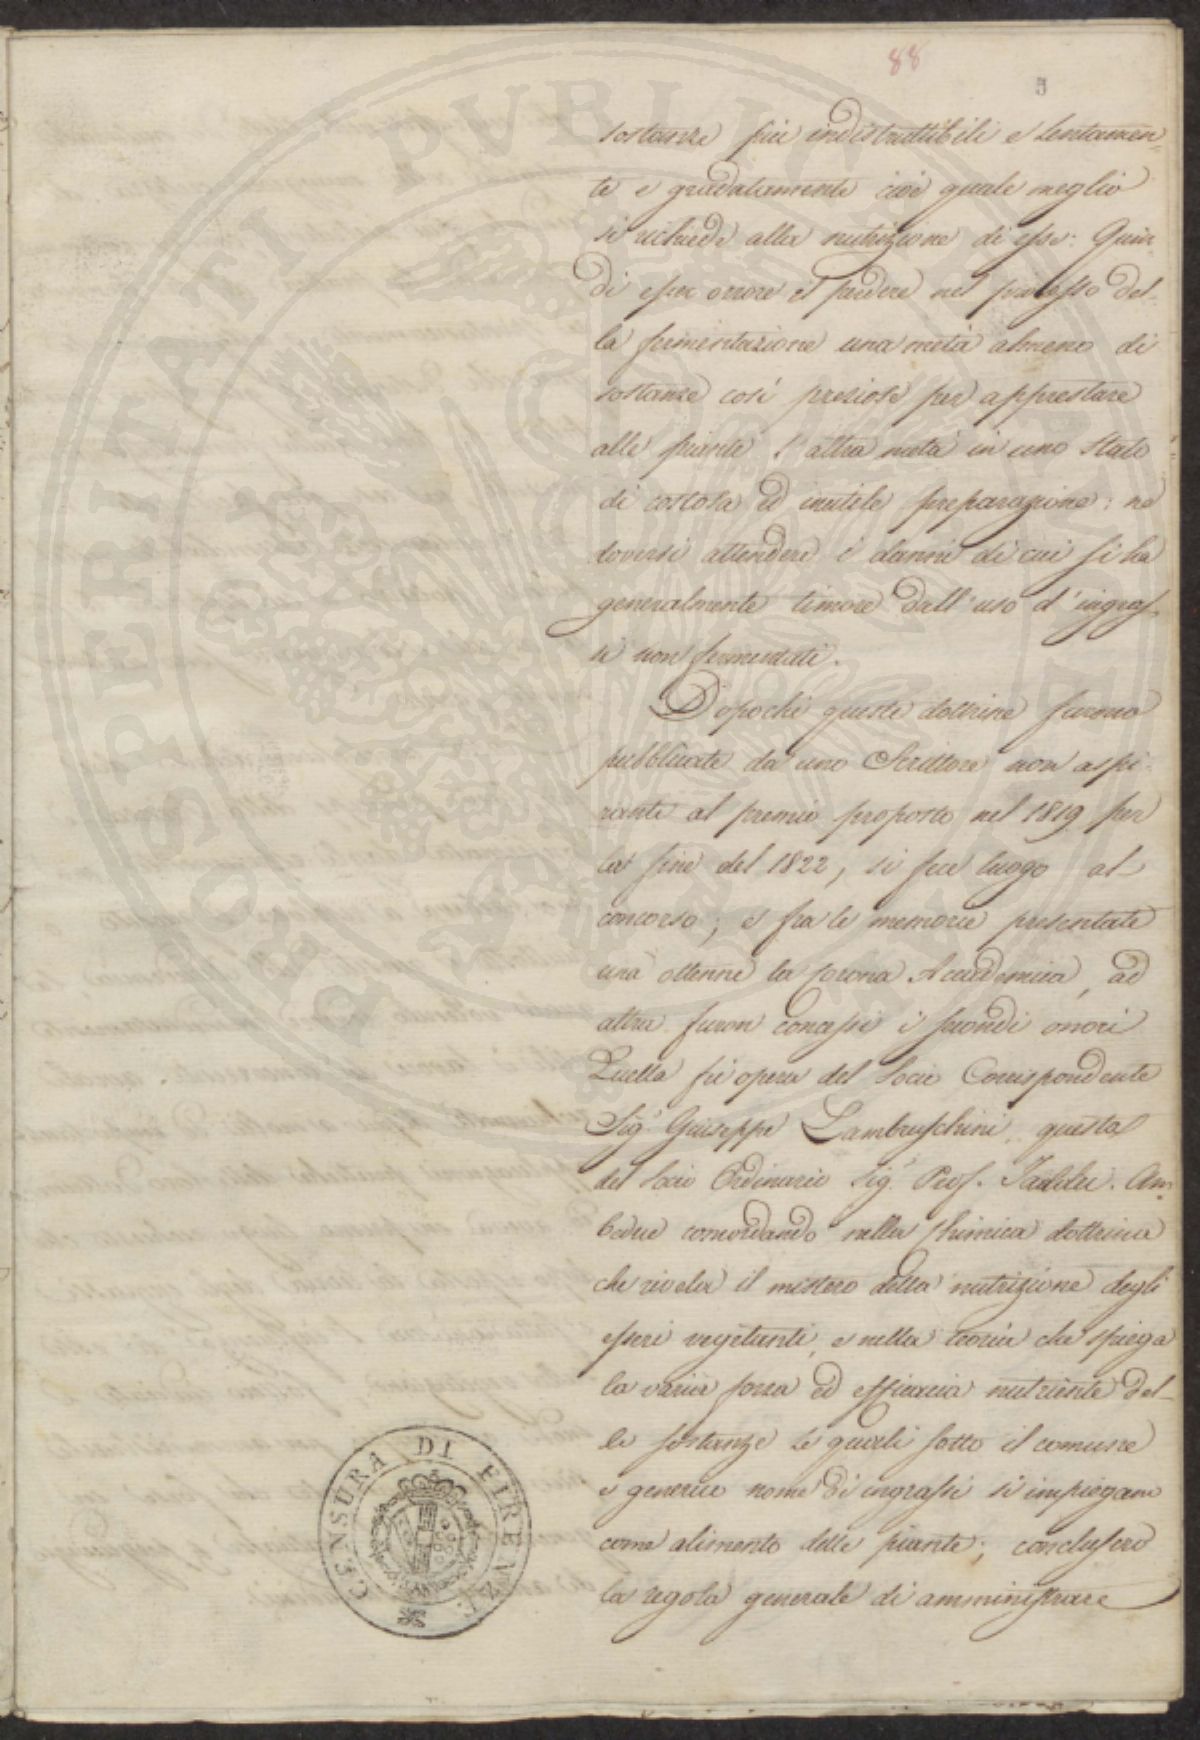 88
5
sostanze più indistruttibili e lentamen=
te e gradatamente cioè quale meglio
si richiede alla nutrizione di esse: Quin
di esser errore il perdere nel processo del-
la fermentazione una metà almeno di
sostanze così preziose per apprestare
alle piante l'altra metà in uno Stato
di costosa ed inutile preparazione: nè
doversi attendere i danni di cui si ha
generalmente timore dall'uso d'ingras-
si non fermentati.
Dopochè queste dottrine furono
pubblicate da uno Scrittore non aspi-
rante al premio proposto nel 1819 per
la fine del 1822, si fece luogo al
concorso; e fra le memorie presentate
una ottenne la Corona Accademica, ad
altra furon concessi i secondi onori
Quella fu opera del Socio Corrispondente
Sig.r Giuseppe Lambruschini, questa
del Socio Ordinario Sig.r Prof. Taddei. Am=
bedue concordando nella Chimica dottrina
che rivela il mistero della nutrizione degli
esseri vegetanti, e nella teoria che spiega
la varia forza ed efficacia nutriente del-
le sostanze le quali sotto il comune
e generico nome di ingrassi si impiegano
come alimento delle piante; conclusero
la regola generale di amministrare
CENSURA DI FIRENZE
PROSPERITATI PUBLICAE AUGENDAE